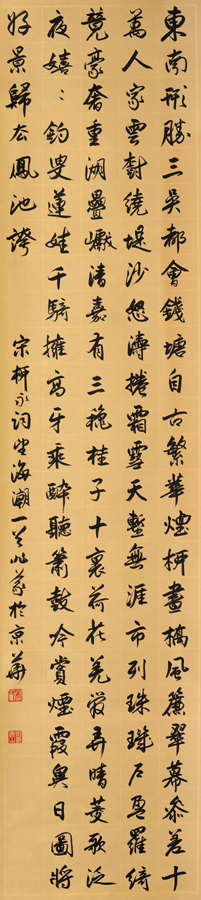 東南形勝三吳都會錢塘自古繁華煙柳畫橋風簾翠幕參差十
萬人家雲樹繞堤沙怒濤捲霜雪天塹無涯市列珠璣戶盈羅綺
競豪奢重湖疊巘清嘉有三穐桂子十裏荷花羌管弄晴菱歌泛
夜嬉〻釣叟蓮娃千騎擁高牙乘醉聽簫鼓吟賞煙霞異日圖將
好景歸去鳳池誇
宋柳永詞望海潮一首於京華